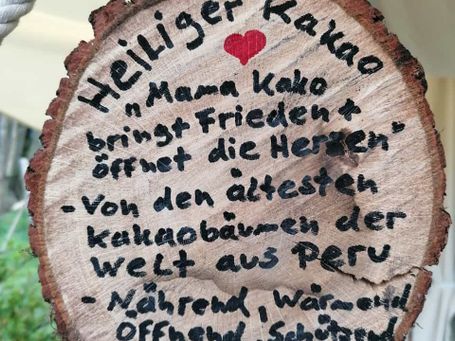 Heiliger Kakao
"Mama Kako
bringt Frieden &
öffnet die Herzen"
- Von den ältesten
Kakaobäumen der
Welt aus Peru
- Nährend, Wärmend
Öffnend, Schützend